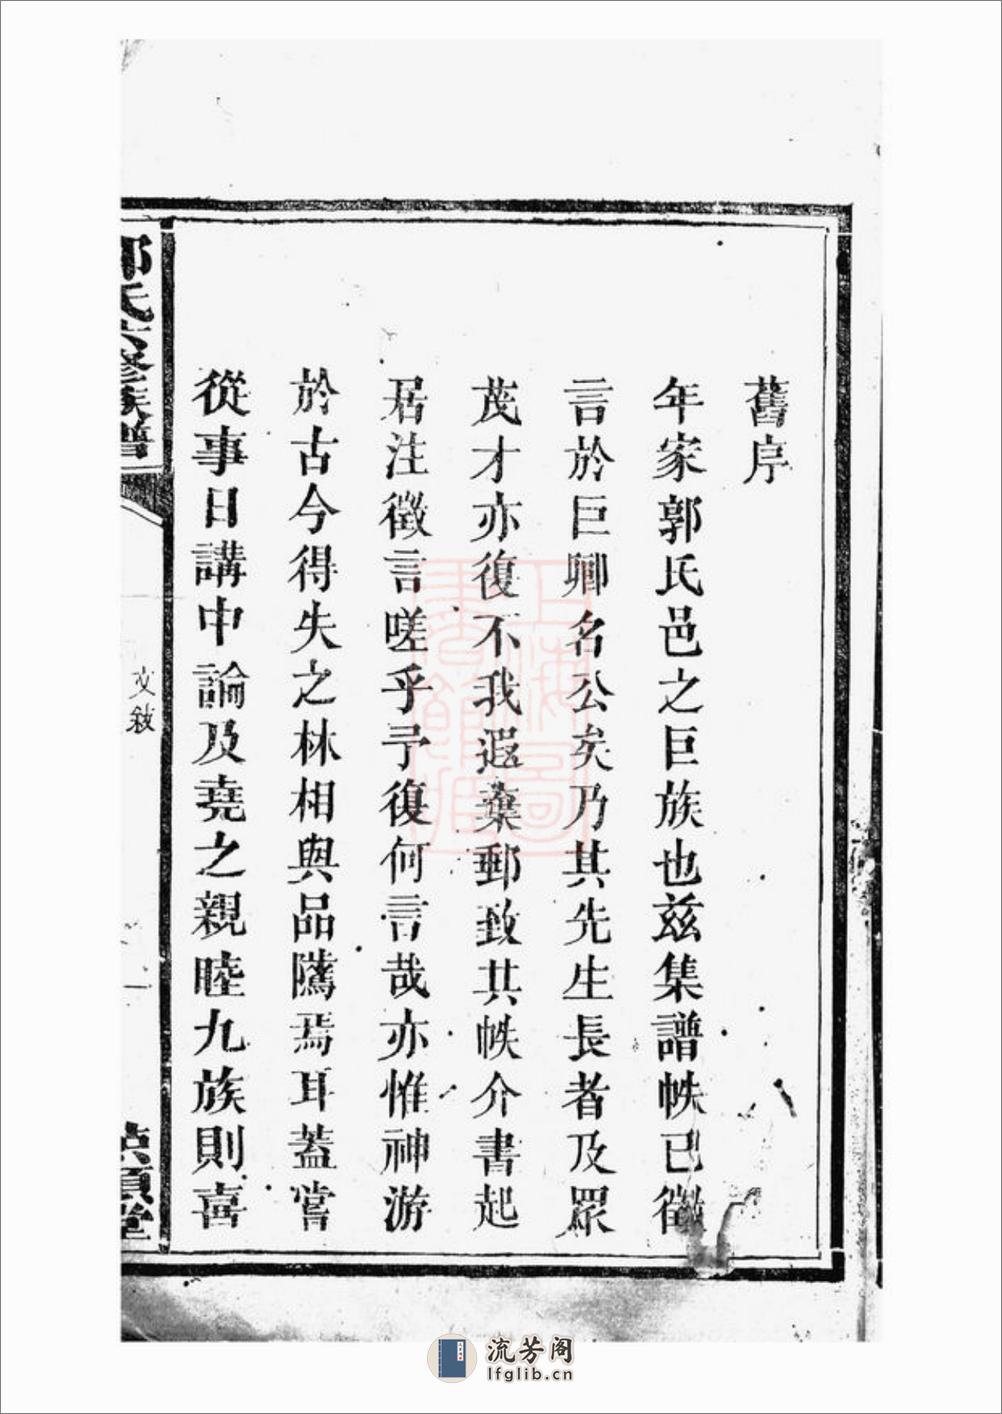 舊序
年家郭氏邑之巨族也茲集譜帙已徵
言於巨卿名公矣乃其先生長者及眾
茂才亦復不我遐棄郵致其帙介書起
居注徵言嗟乎予復何言哉亦惟神游
於古今得失之林相與品隲焉耳蓋嘗
從事日講中論及堯之親睦九族則喜
氏六修族譜
文敘
一
堂
上海圖書館藏
流芳阁
lfglib.cn